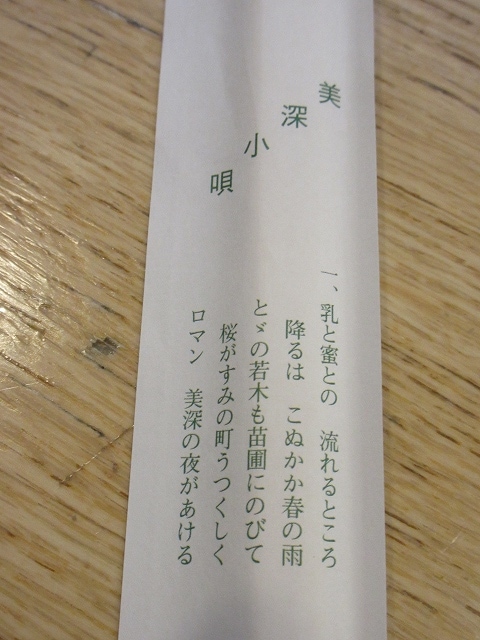 美深小唄
一、乳と蜜との　流れるところ
降るは　こぬかか春の雨
とゞの若木も苗圃にのびて
桜がすみの町うつくしく
ロマン　美深の夜があける